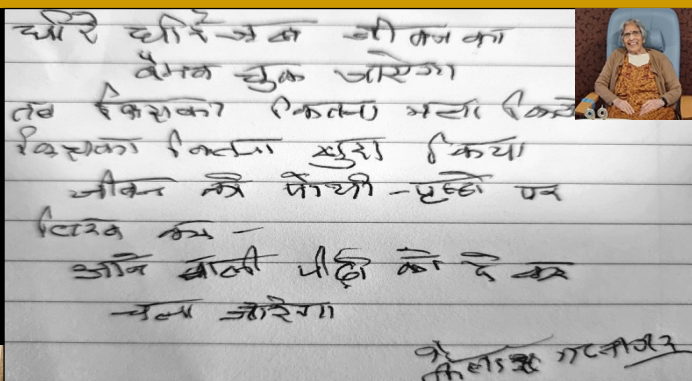 धीरे धीरे जब जीवन का
वैभव चुक जायेगा
तब किसका कितना भला किया
किसका कितना बुरा किया
जीवन की पोथी - पृष्ठों पर
लिख कर -
आने वाली पीढ़ी को दे कर
चला जायेगा
भटनागर